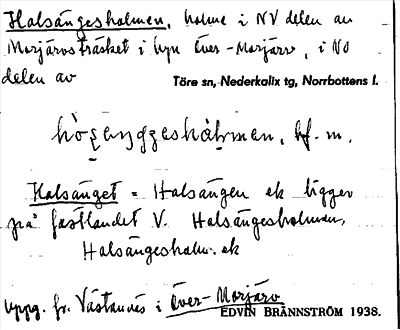 Halsängesholmen, holme i NV delen av
Morjärvsträsket i byn Över-Morjärv, i NO
delen av
Töre sn, Nederkalix tg, Norrbottens l.
bf. m.
Halsänget = Halsängen ek ligger
på fastlandet V. Halsängesholmen,
Halsängesholm. ek
Uppg. fr. Västannäs i Över-Morjärv
EDVIN BRÄNNSTRÖM 1938.